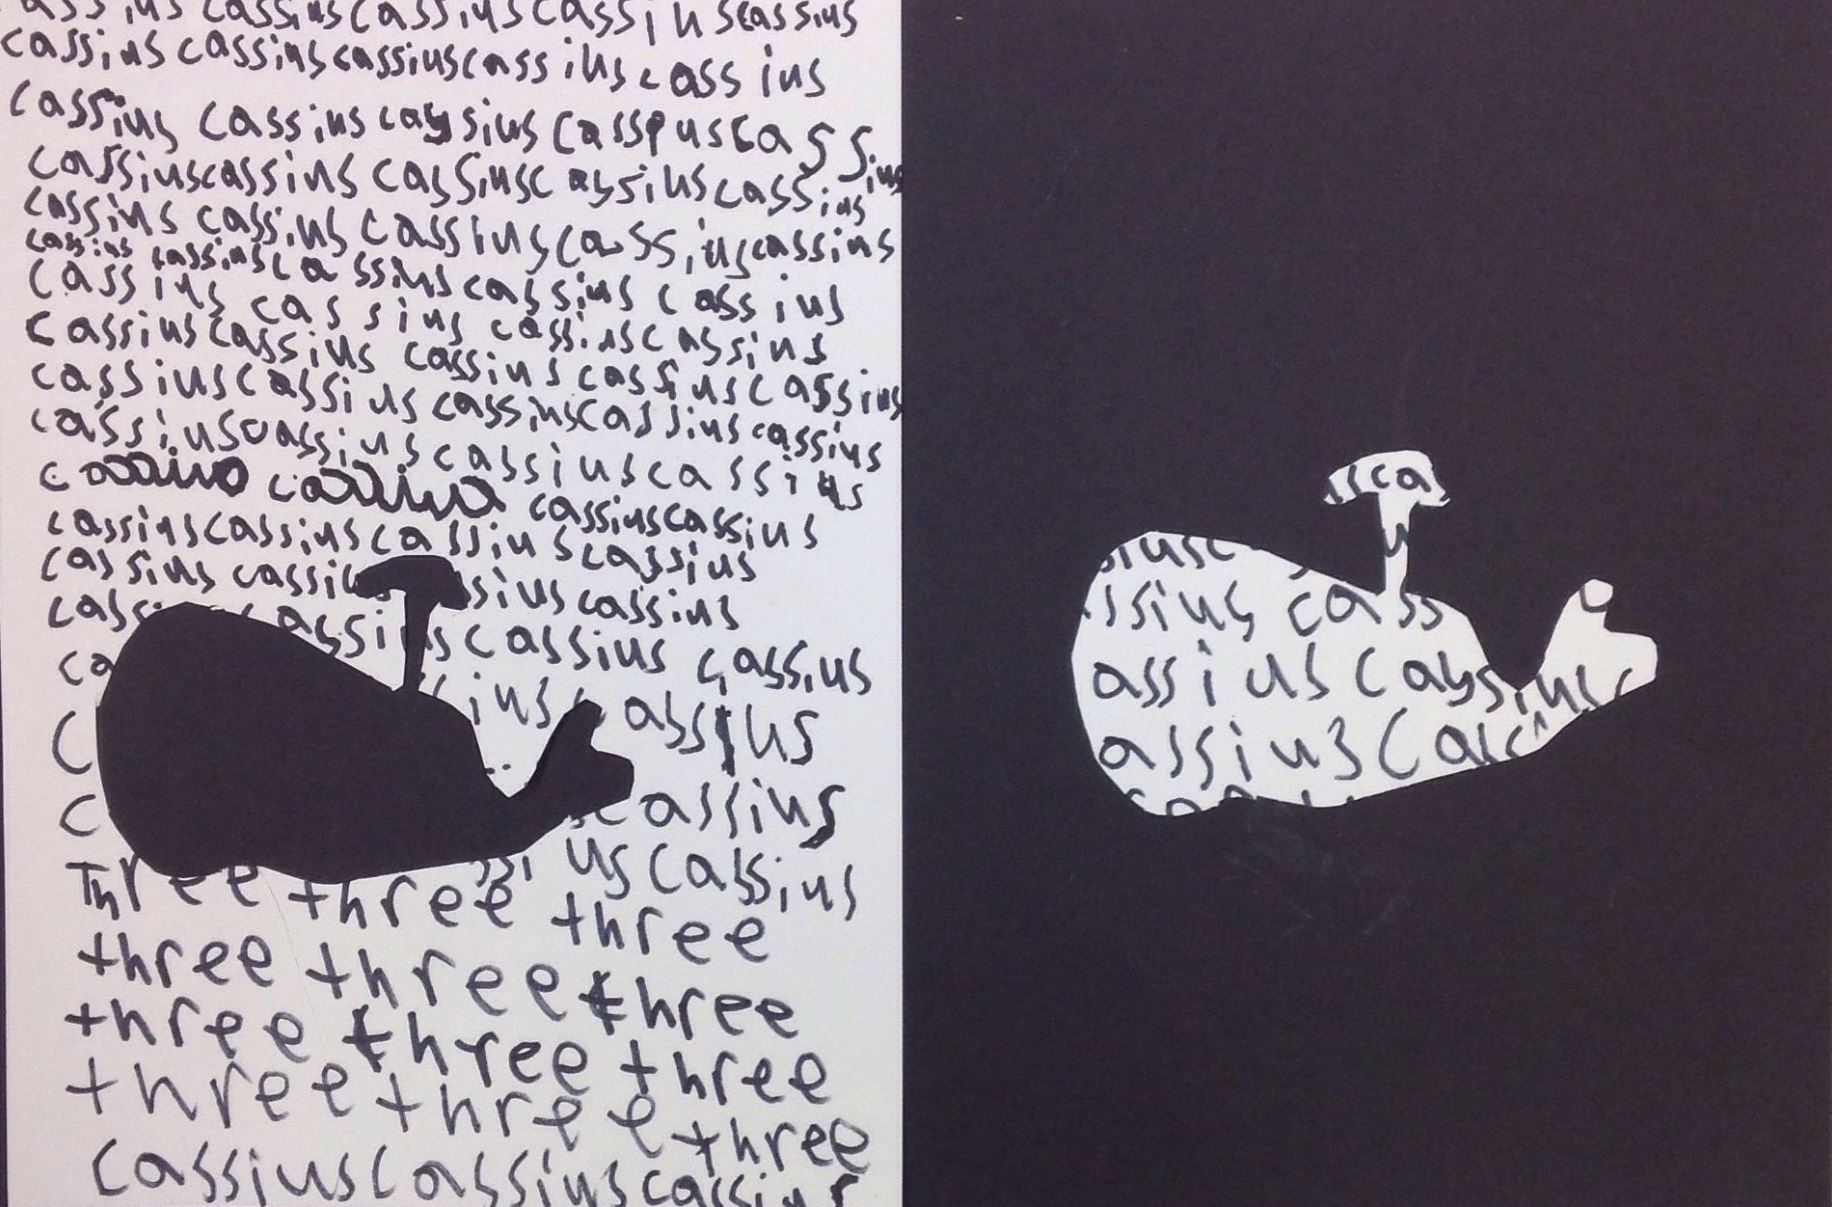 cassius cassius cassius cassius
cassius cassius cassius cassius cassius
cassius cassius cassius cassius cassius
cassius cassius cassius cassius cassius
cassius cassius cassius cassius cassius
cassius cassius cassius cassius cassius
cassius cassius cassius cassius
cassius cassius cassius cassius cassius
cassius cassius cassius cassius cassius
cassius cassius cassius cassius
cassius cassius cassius cassius
cassius cassius cassius cassius
cassius cassiu ssius cassius
cass assius cassius cassius
ca sius cassius
c cassius
c ssius cassius
Three three three
three three three
three three three
three three three
cassius cassius cassius
sca
u
siusc
ssius cass
assius cassius c
assius cass